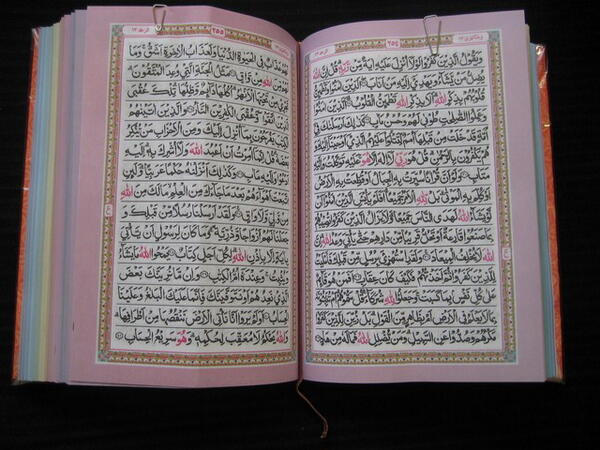 ٢٥٤
وَيَقُولُ الَّذِينَ كَفَرُوا لَوْلَا أُنْزِلَ عَلَيْهِ آيَةٌ مِنْ رَبِّهِ قُلْ إِنَّ اللّٰهَ
يُضِلُّ مَنْ يَشَاءُ وَيَهْدِي إِلَيْهِ مَنْ أَنَابَ الَّذِينَ آمَنُوا وَتَطْمَئِنُّ
قُلُوبُهُمْ بِذِكْرِ اللّٰهِ أَلَا بِذِكْرِ اللّٰهِ تَطْمَئِنُّ الْقُلُوبُ الَّذِينَ آمَنُوا
وَعَمِلُوا الصّٰلِحٰتِ طُوبٰى لَهُمْ وَحُسْنُ مَآبٍ كَذٰلِكَ أَرْسَلْنٰكَ فِي
أُمَّةٍ قَدْ خَلَتْ مِنْ قَبْلِهَا أُمَمٌ لِتَتْلُوَا عَلَيْهِمُ الَّذِي أَوْحَيْنَا إِلَيْكَ وَ
هُمْ يَكْفُرُونَ بِالرَّحْمٰنِ قُلْ هُوَ رَبِّي لَا إِلٰهَ إِلَّا هُوَ عَلَيْهِ تَوَكَّلْتُ وَإِلَيْهِ
مَتَابِ وَلَوْ أَنَّ قُرْآنًا سُيِّرَتْ بِهِ الْجِبَالُ أَوْ قُطِّعَتْ بِهِ الْأَرْضُ
أَوْ كُلِّمَ بِهِ الْمَوْتٰى بَلْ لِلّٰهِ الْأَمْرُ جَمِيعًا أَفَلَمْ يَايْئَسِ الَّذِينَ آمَنُوا أَنْ
لَوْ يَشَاءُ اللّٰهُ لَهَدَى النَّاسَ جَمِيعًا وَلَا يَزَالُ الَّذِينَ كَفَرُوا تُصِيبُهُمْ
بِمَا صَنَعُوا قَارِعَةٌ أَوْ تَحُلُّ قَرِيبًا مِنْ دَارِهِمْ حَتّٰى يَأْتِيَ وَعْدُ
اللّٰهِ إِنَّ اللّٰهَ لَا يُخْلِفُ الْمِيعَادَ وَلَقَدِ اسْتُهْزِئَ بِرُسُلٍ مِنْ قَبْلِكَ فَأَمْلَيْتُ
لِلَّذِينَ كَفَرُوا ثُمَّ أَخَذْتُهُمْ فَكَيْفَ كَانَ عِقَابِ أَفَمَنْ هُوَ قَائِمٌ
عَلٰى كُلِّ نَفْسٍ بِمَا كَسَبَتْ وَجَعَلُوا لِلّٰهِ شُرَكَاءَ قُلْ سَمُّوهُمْ أَمْ
تُنَبِّئُونَهُ بِمَا لَا يَعْلَمُ فِي الْأَرْضِ أَمْ بِظَاهِرٍ مِنَ الْقَوْلِ بَلْ زُيِّنَ لِلَّذِينَ كَفَرُوا
مَكْرُهُمْ وَصُدُّوا عَنِ السَّبِيلِ وَمَنْ يُضْلِلِ اللّٰهُ فَمَا لَهُ مِنْ هَادٍ
٢٥٥
لَهُمْ عَذَابٌ فِي الْحَيٰوةِ الدُّنْيَا وَلَعَذَابُ الْآخِرَةِ أَشَقُّ وَمَا
لَهُمْ مِنَ اللّٰهِ مِنْ وَاقٍ مَثَلُ الْجَنَّةِ الَّتِي وُعِدَ الْمُتَّقُونَ
تَجْرِي مِنْ تَحْتِهَا الْأَنْهٰرُ أُكُلُهَا دَائِمٌ وَظِلُّهَا تِلْكَ عُقْبَى
الَّذِينَ اتَّقَوْا وَعُقْبَى الْكٰفِرِينَ النَّارُ وَالَّذِينَ آتَيْنٰهُمُ
الْكِتٰبَ يَفْرَحُونَ بِمَا أُنْزِلَ إِلَيْكَ وَمِنَ الْأَحْزَابِ مَنْ يُنْكِرُ
بَعْضَهُ قُلْ إِنَّمَا أُمِرْتُ أَنْ أَعْبُدَ اللّٰهَ وَلَا أُشْرِكَ بِهِ إِلَيْهِ
أَدْعُوا وَإِلَيْهِ مَآبِ وَكَذٰلِكَ أَنْزَلْنٰهُ حُكْمًا عَرَبِيًّا وَلَئِنِ
اتَّبَعْتَ أَهْوَاءَهُمْ بَعْدَ مَا جَاءَكَ مِنَ الْعِلْمِ مَا لَكَ مِنَ اللّٰهِ
مِنْ وَلِيٍّ وَلَا وَاقٍ وَلَقَدْ أَرْسَلْنَا رُسُلًا مِنْ قَبْلِكَ وَ
جَعَلْنَا لَهُمْ أَزْوَاجًا وَذُرِّيَّةً وَمَا كَانَ لِرَسُولٍ أَنْ يَأْتِيَ
بِآيَةٍ إِلَّا بِإِذْنِ اللّٰهِ لِكُلِّ أَجَلٍ كِتَابٌ يَمْحُوا اللّٰهُ مَا يَشَاءُ
وَيُثْبِتُ وَعِنْدَهُ أُمُّ الْكِتٰبِ وَإِنْ مَا نُرِيَنَّكَ بَعْضَ
الَّذِي نَعِدُهُمْ أَوْ نَتَوَفَّيَنَّكَ فَإِنَّمَا عَلَيْكَ الْبَلٰغُ وَعَلَيْنَا
الْحِسَابُ أَوَلَمْ يَرَوْا أَنَّا نَأْتِي الْأَرْضَ نَنْقُصُهَا مِنْ أَطْرَافِهَا وَ
اللّٰهُ يَحْكُمُ لَا مُعَقِّبَ لِحُكْمِهِ وَهُوَ سَرِيعُ الْحِسَابِ